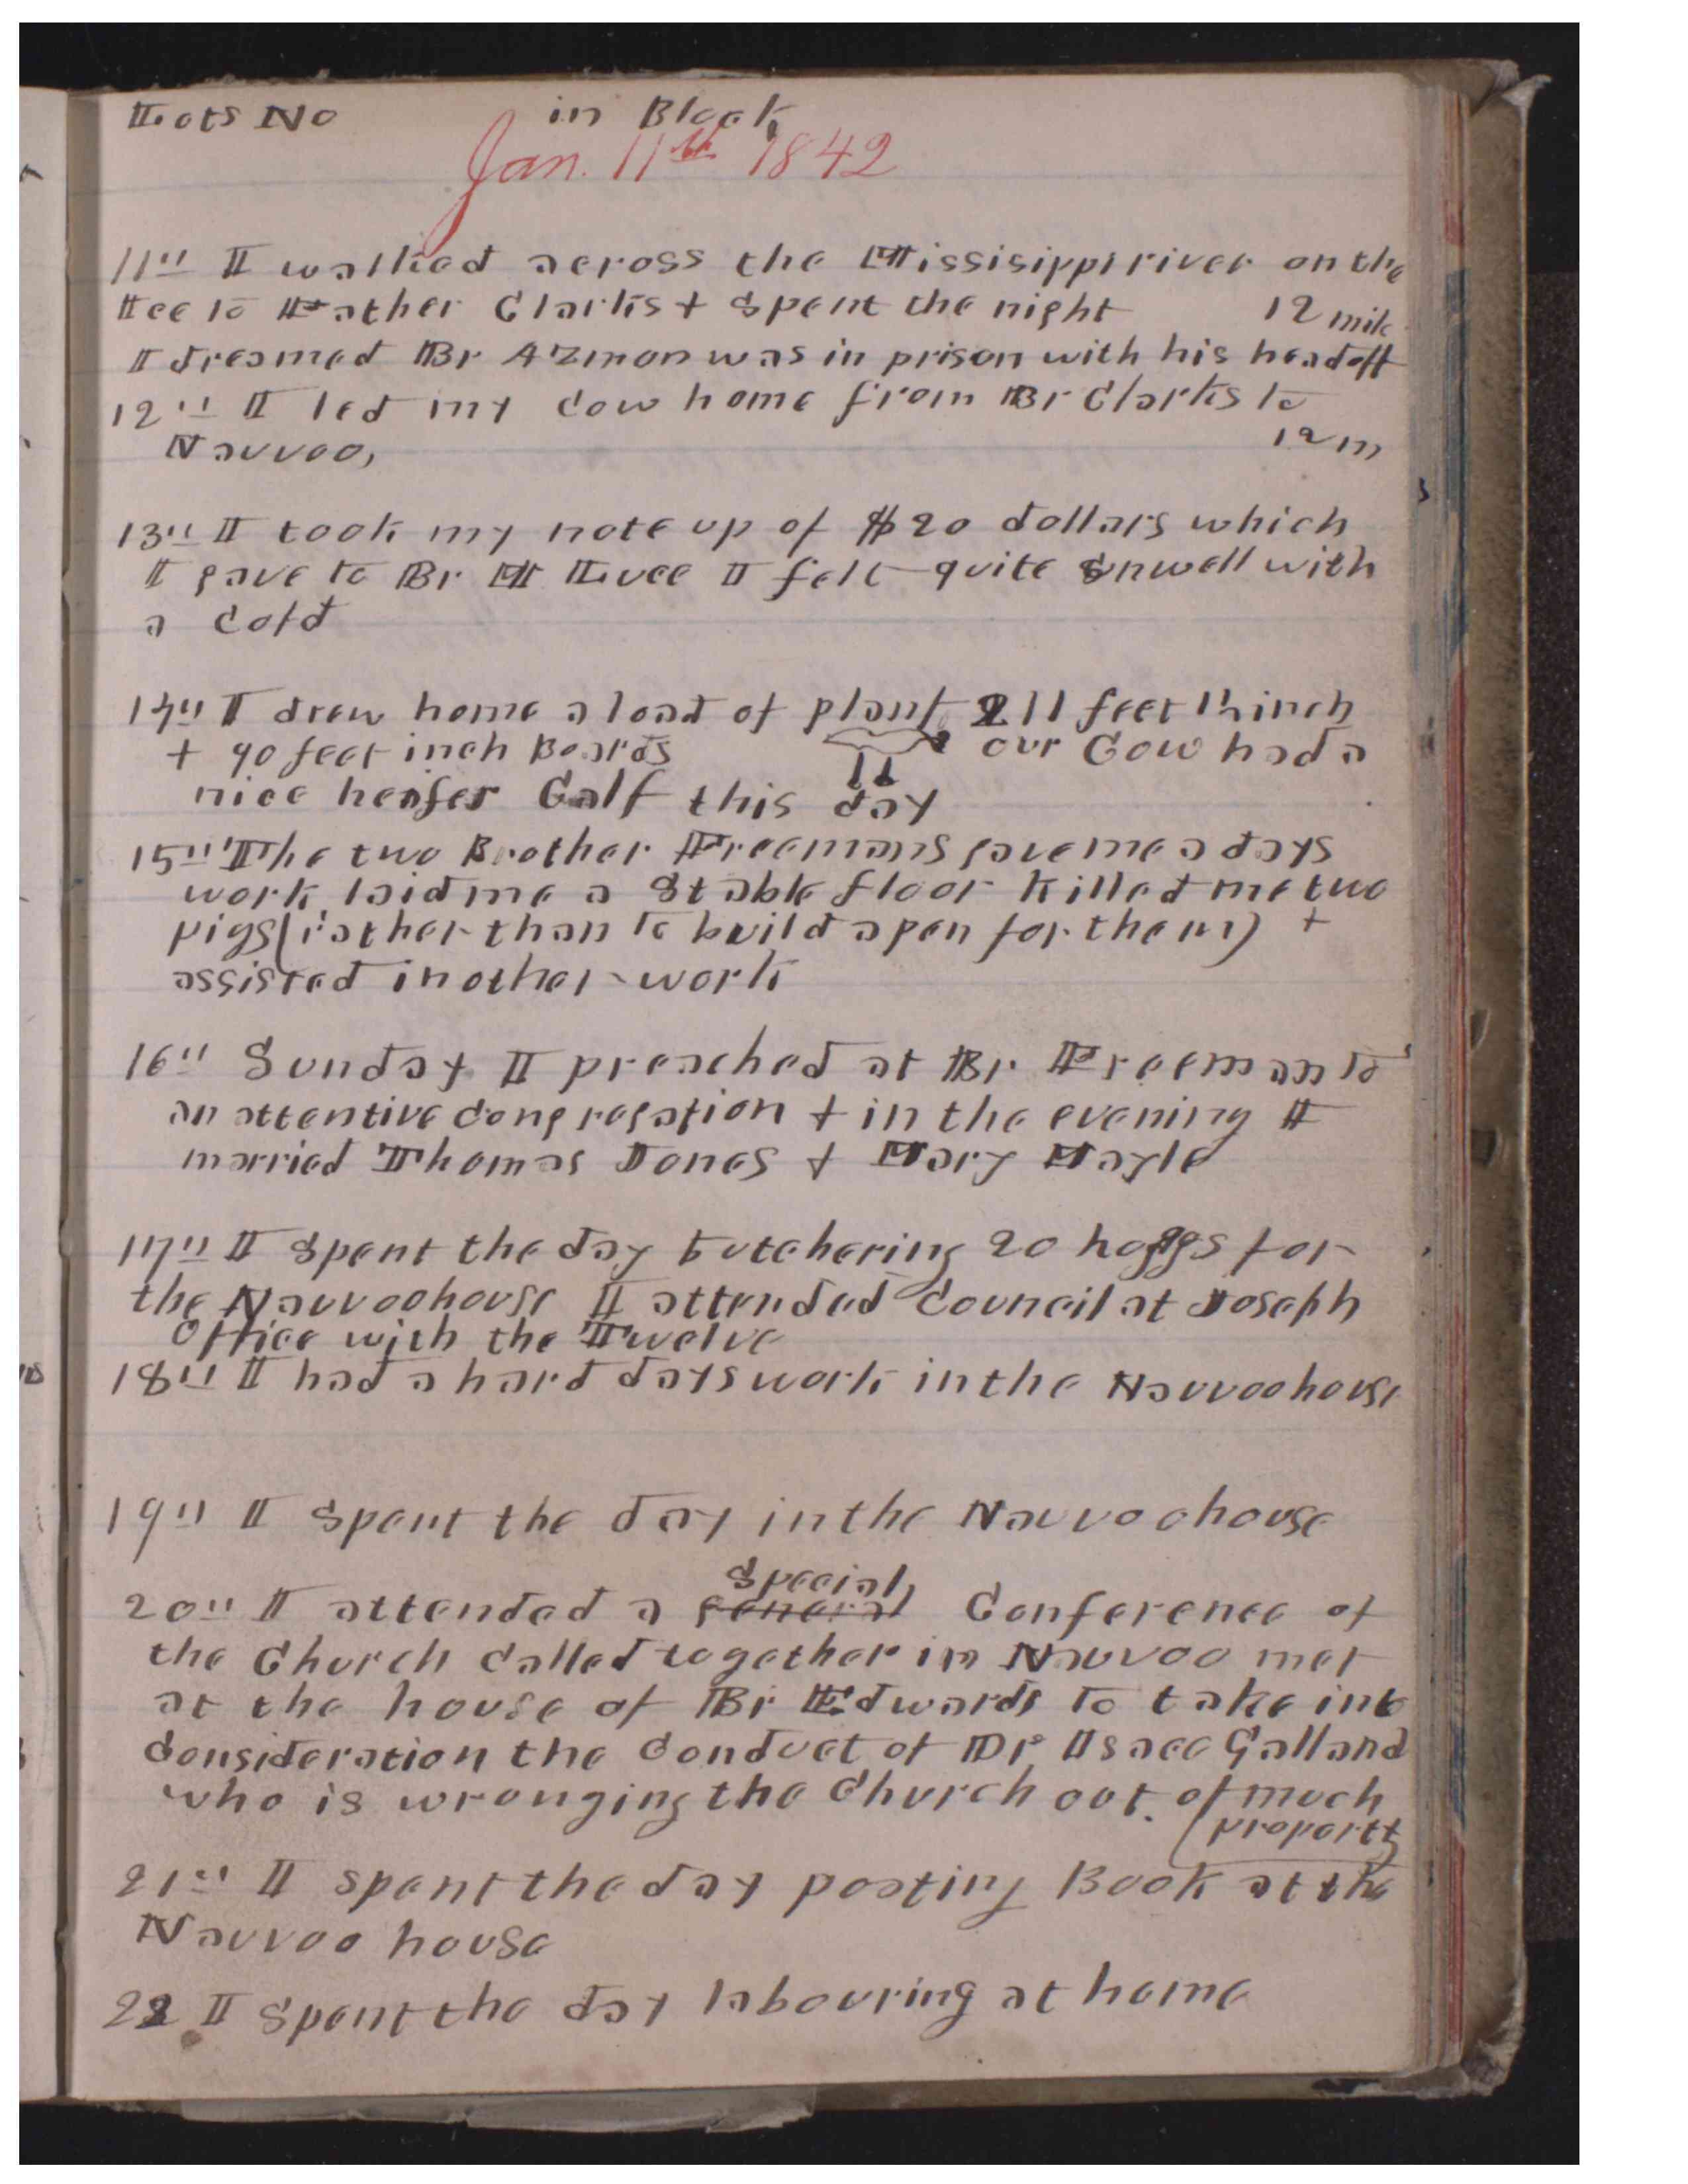 Lots No in Block
Jan. 11th 1842
11th I walked across the Missisippi river on the
Ice to Father Clarks & Spent the night 12 mile
I dreamed Br Azmon was in prison with his head off
12th I led my Cow home from Br Clarks to
Nauvoo, 12 m
13th I took my note up of $20 dollars which
I gave to Br M Luce I felt quite unwell with
a Cold
14th I drew home a load of plank 211 feet 1½ inch
& 90 feet inch Boards our Cow had a
nice heafer Calf this day
15th The two Brother Freemans gave me a days
work laid me a Stable floor killed me two
pigs (rather than to build a pen for them) &
assisted in other work
16th Sunday I preached at Br Freeman to
an attentive Congregation & in the evening I
married Thomas Jones & Mary Hayle
17th I Spent the day butchering 20 hoggs for
the Nauvoo house I attended Council at Joseph
Office with the Twelve
18th I had a hard days work in the Nauvoo house
19th I Spent the day in the Nauvoo house
Special
20th I attended a general Conference of
the Church Called together in Nauvoo met
at the house of Br Edwards to take into
Consideration the Conduct of Dr Isaac Galland
who is wronging the Church out of much
property
21st I spent the day posting Book at the
Nauvoo house
22 I Spent the day labouring at home